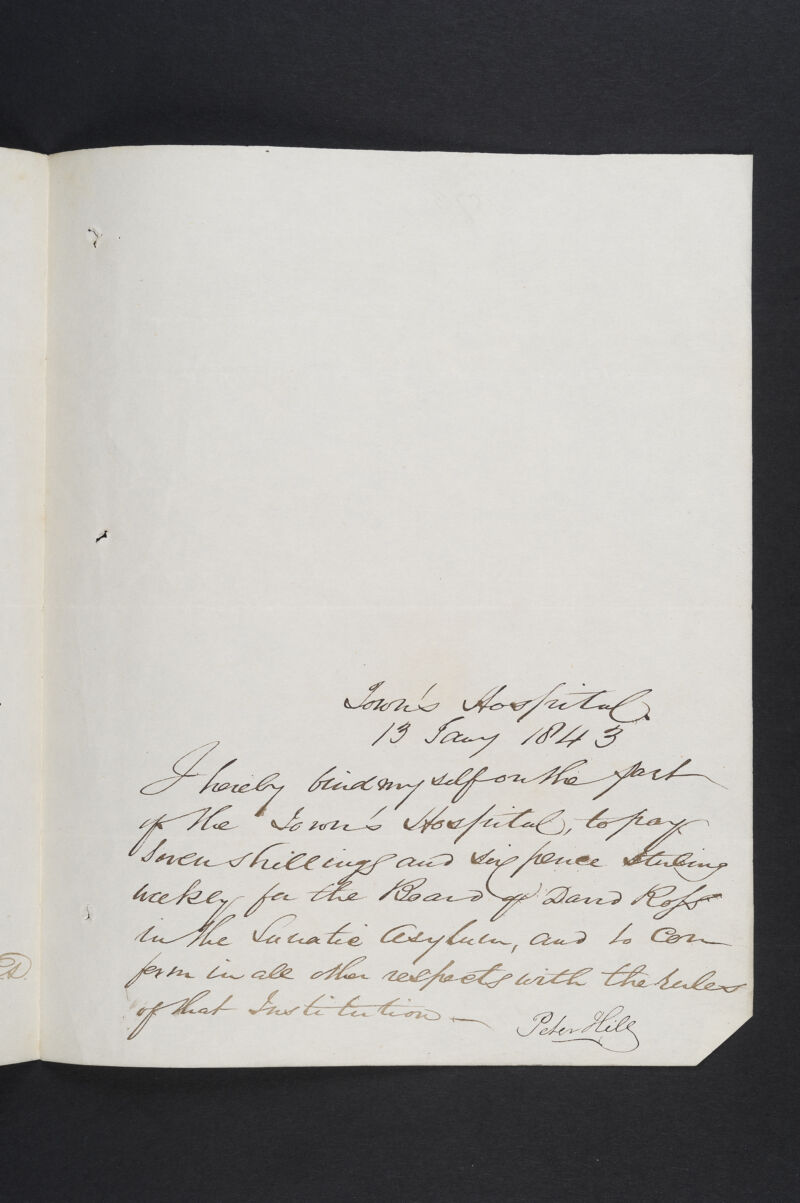 Town's Hospital
13 Jany 1843
I hereby bind myself on the part
of the Town's Hospital, to pay
Seven shillings and six pence sterling
weekly for the Board of David Ross
in the Lunatic Asylum, and to con
form in all other respects with the rules
of that Institution —
Peter Hill